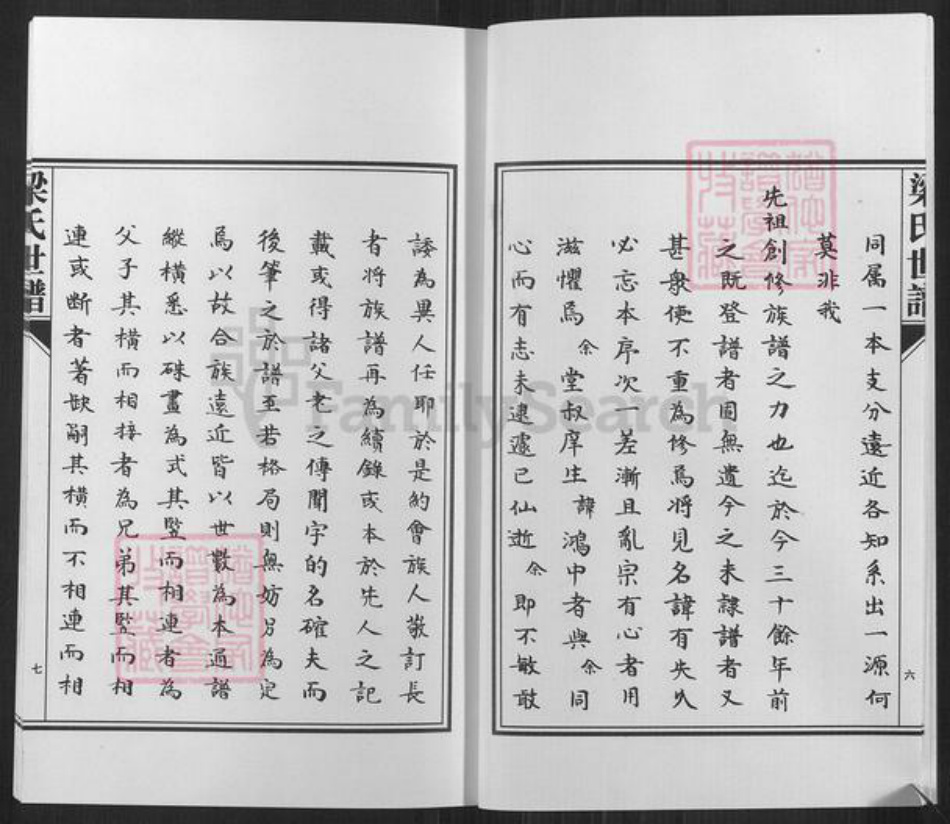 梁氏世譜
六
同属一本支分遠近各知系出一源何
莫非我
先祖創修族譜之力也迄於今三十餘年前
之既登譜者固無遺今之未隸譜者又
甚般使不重為修焉將見名諱有失久
必忘本序次一差漸且亂宗有心者用
滋懼焉余堂叔庠生諱鴻中者與余同
心而有志未逮遽已仙逝余即不敏敢
諉為異人任耶於是約會族人敬訂長
者將族譜再為續錄或本於先人之記
載或得諸父老之傳聞字的名確夫而
後筆之於譜至若格局則無妨另為定
焉以故合族遠近皆以世數為本通譜
縱橫悉以硃畫為式其竪而相連者為
父子其橫而相接者為兄弟其竪而相
連或断者著缺嗣其橫而不相連而相
梁氏世譜
七
FamilySearch